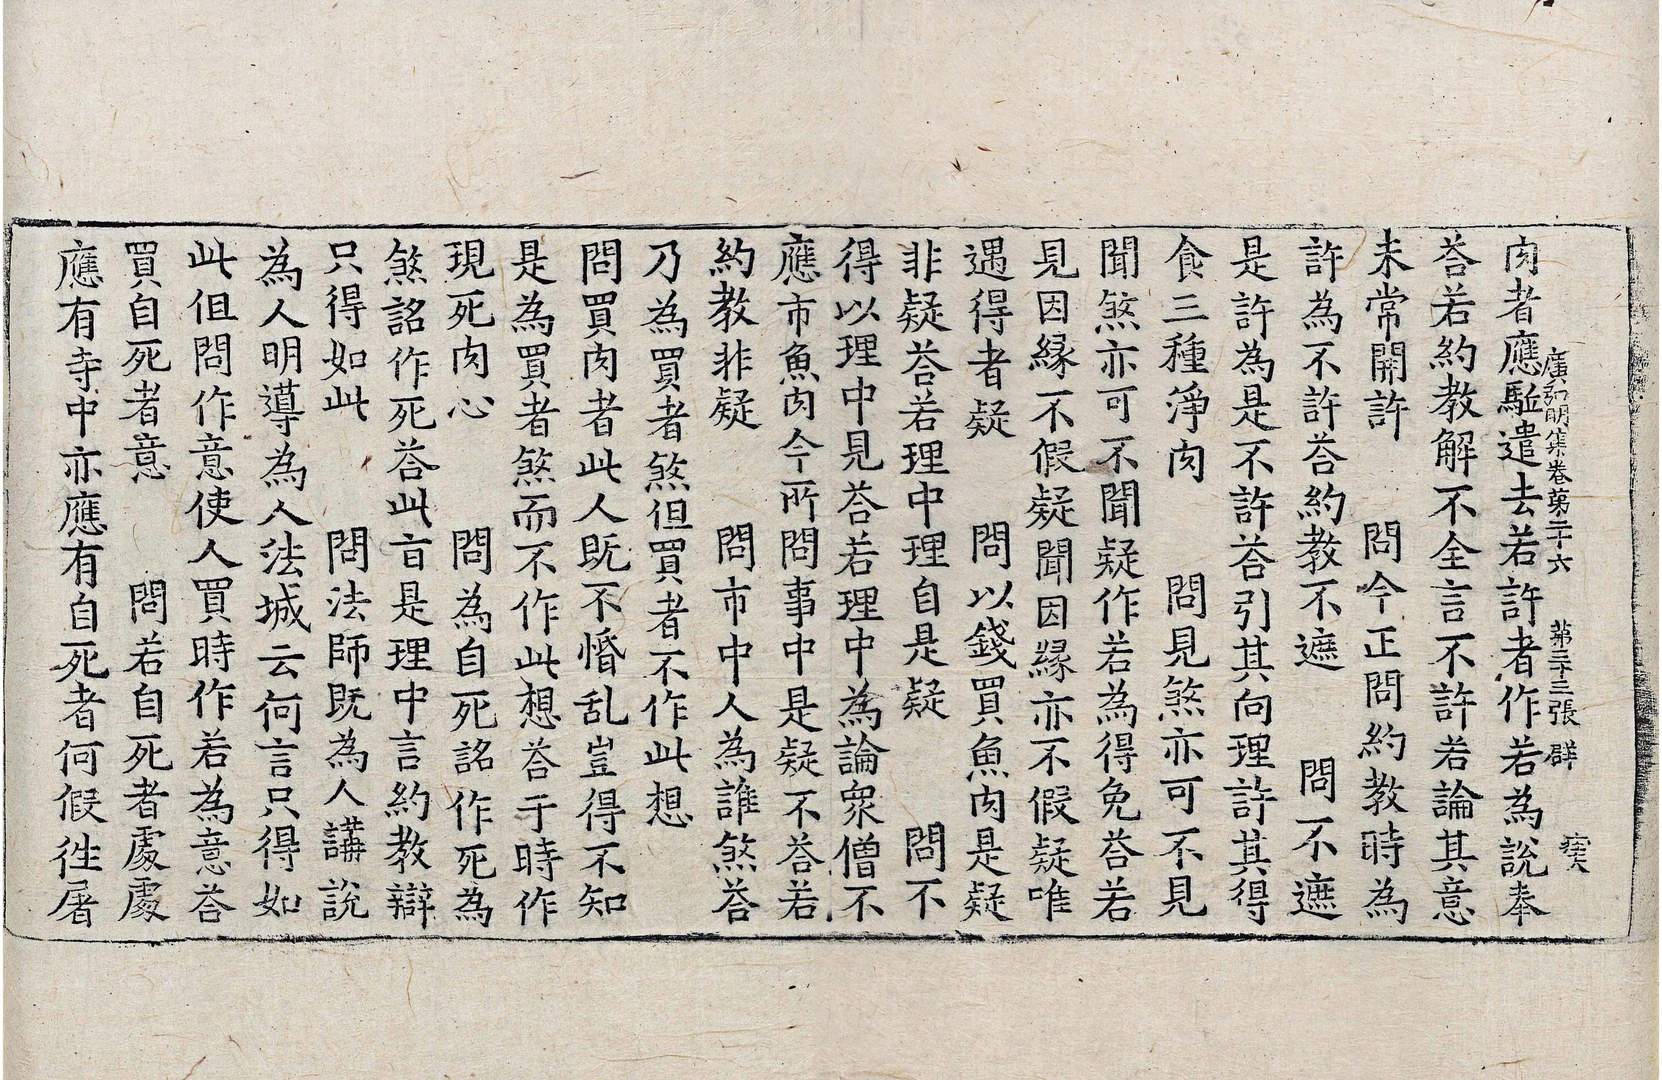 肉者應駈遣去若許者作若為說奉
廣弘明集卷第二十六 第三十三張 群
答若約教解不全言不許若論其意
未常開許 問今正問約教時為
許為不許答約教不遮 問不遮
是許為是不許答引其向理許其得
食三種淨肉 問見煞亦可不見
聞煞亦可不聞疑作若為得免答若
見因緣不假疑聞因緣亦不假疑唯
遇得者疑 問以錢買魚肉是疑
非疑答若理中理自是疑 問不
得以理中見答若理中為論眾僧不
應市魚肉今所問事中是疑不答若
約教非疑 問市中人為誰煞答
乃為買者煞但買者不作此想
問買肉者此人既不惛乱豈得不知
是為買者煞而不作此想答于時作
現死肉心 問為自死詺作死為
煞詺作死答此旨是理中言約教辯
只得如此 問法師既為人講說
為人明導為人法城云何言只得如
此但問作意使人買時作若為意答
買自死者意 問若自死者處處
應有寺中亦應有自死者何假徃屠